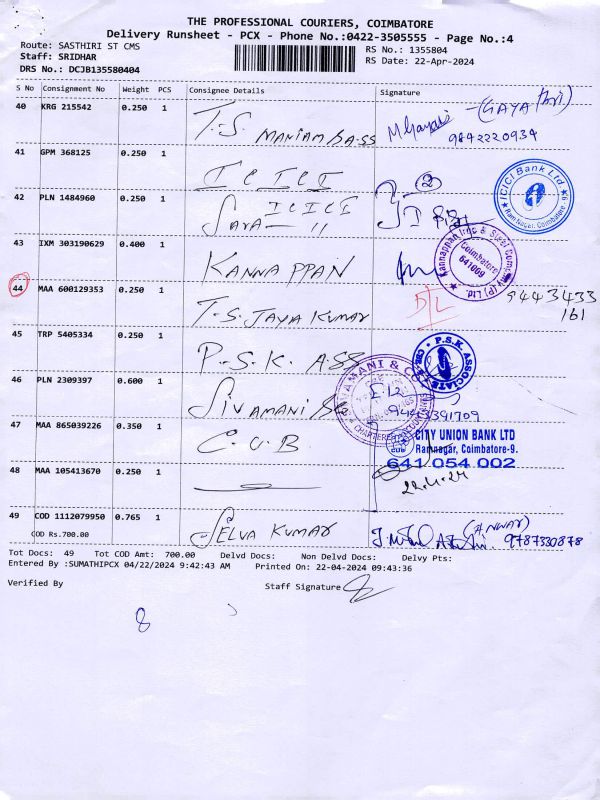 THE PROFESSIONAL COURIERS, COIMBATORE
Delivery Runsheet - PCX - Phone No.:0422-3505555 - Page No.:4
Route: SASTHIRI ST CMS RS No.: 1355804
Staff: SRIDHAR RS Date: 22-Apr-2024
DRS No.: DCJB135580404
S No Consignment No Weight PCS Consignee Details Signature
40 KRG 215542 0.250 1 T.S. MANIAM &ASS
9842220934
41 GPM 368125 0.250 1 ICICI
ICICI Bank Ltd. Ram Nagar, Coimbatore-9
42 PLN 1484960 0.250 1 ICICI
43 IXM 303190629 0.400 1 KANNAPPAN
Kannappan Iron & Steel Company (P) Ltd. Coimbatore 641009
44 MAA 600129353 0.250 1 T.S. JAYA KUMAR D/L 9443433
161
45 TRP 5405334 0.250 1 P.S.K. ASS
P.S.K. ASSOCIATE
46 PLN 2309397 0.600 1 SIVAMANI &
47 MAA 865039226 0.350 1 C.U.B
CUB
CITY UNION BANK LTD
Ramnagar, Coimbatore-9.
641 054 002
48 MAA 105413670 0.250 1
22.4.24
49 COD 1112079950 0.765 1 SELVA KUMAR (ANWAR)
COD Rs.700.00 9787330878
Tot Docs: 49 Tot COD Amt: 700.00 Delvd Docs: Non Delvd Docs: Delvy Pts:
Entered By :SUMATHIPCX 04/22/2024 9:42:43 AM Printed On: 22-04-2024 09:43:36
Verified By Staff Signature